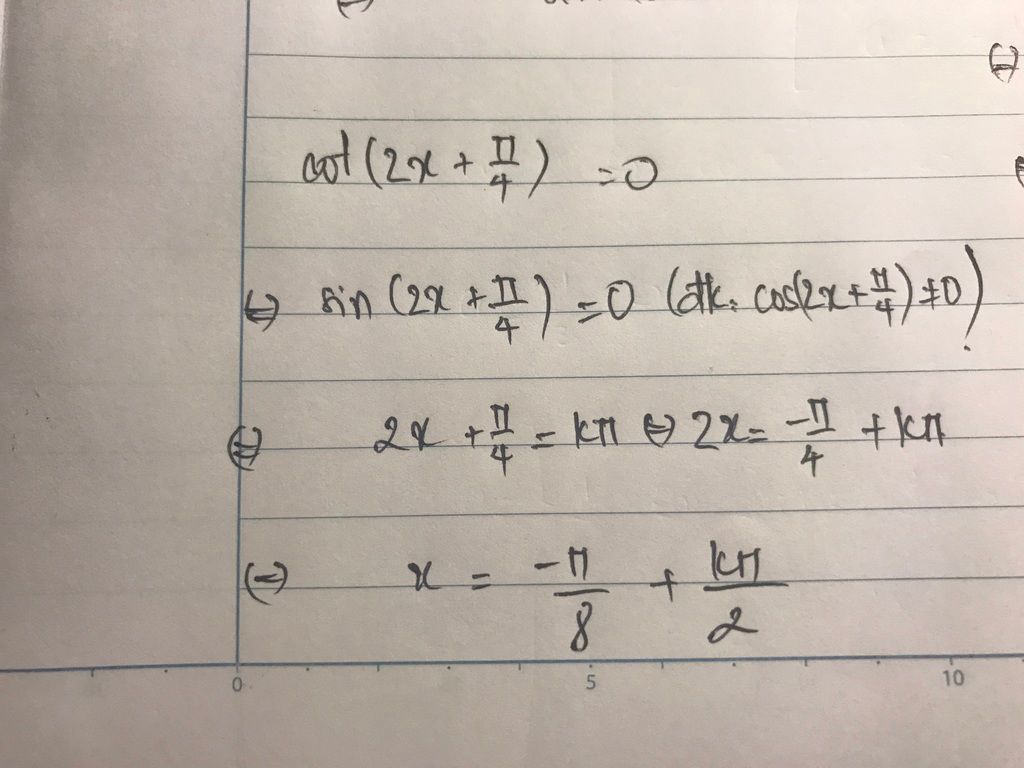 cot(2x + π/4) = 0
⇔ sin(2x + π/4) = 0 (đk: cos(2x + π/4) ≠ 0)
⇔ 2x + π/4 = kπ ⇔ 2x = -π/4 + kπ
⇔ x = -π/8 + kπ/2
0 5 10